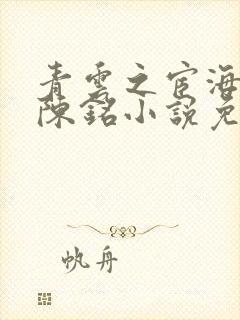 青雲之宦海
陳銘小說免
帆舟